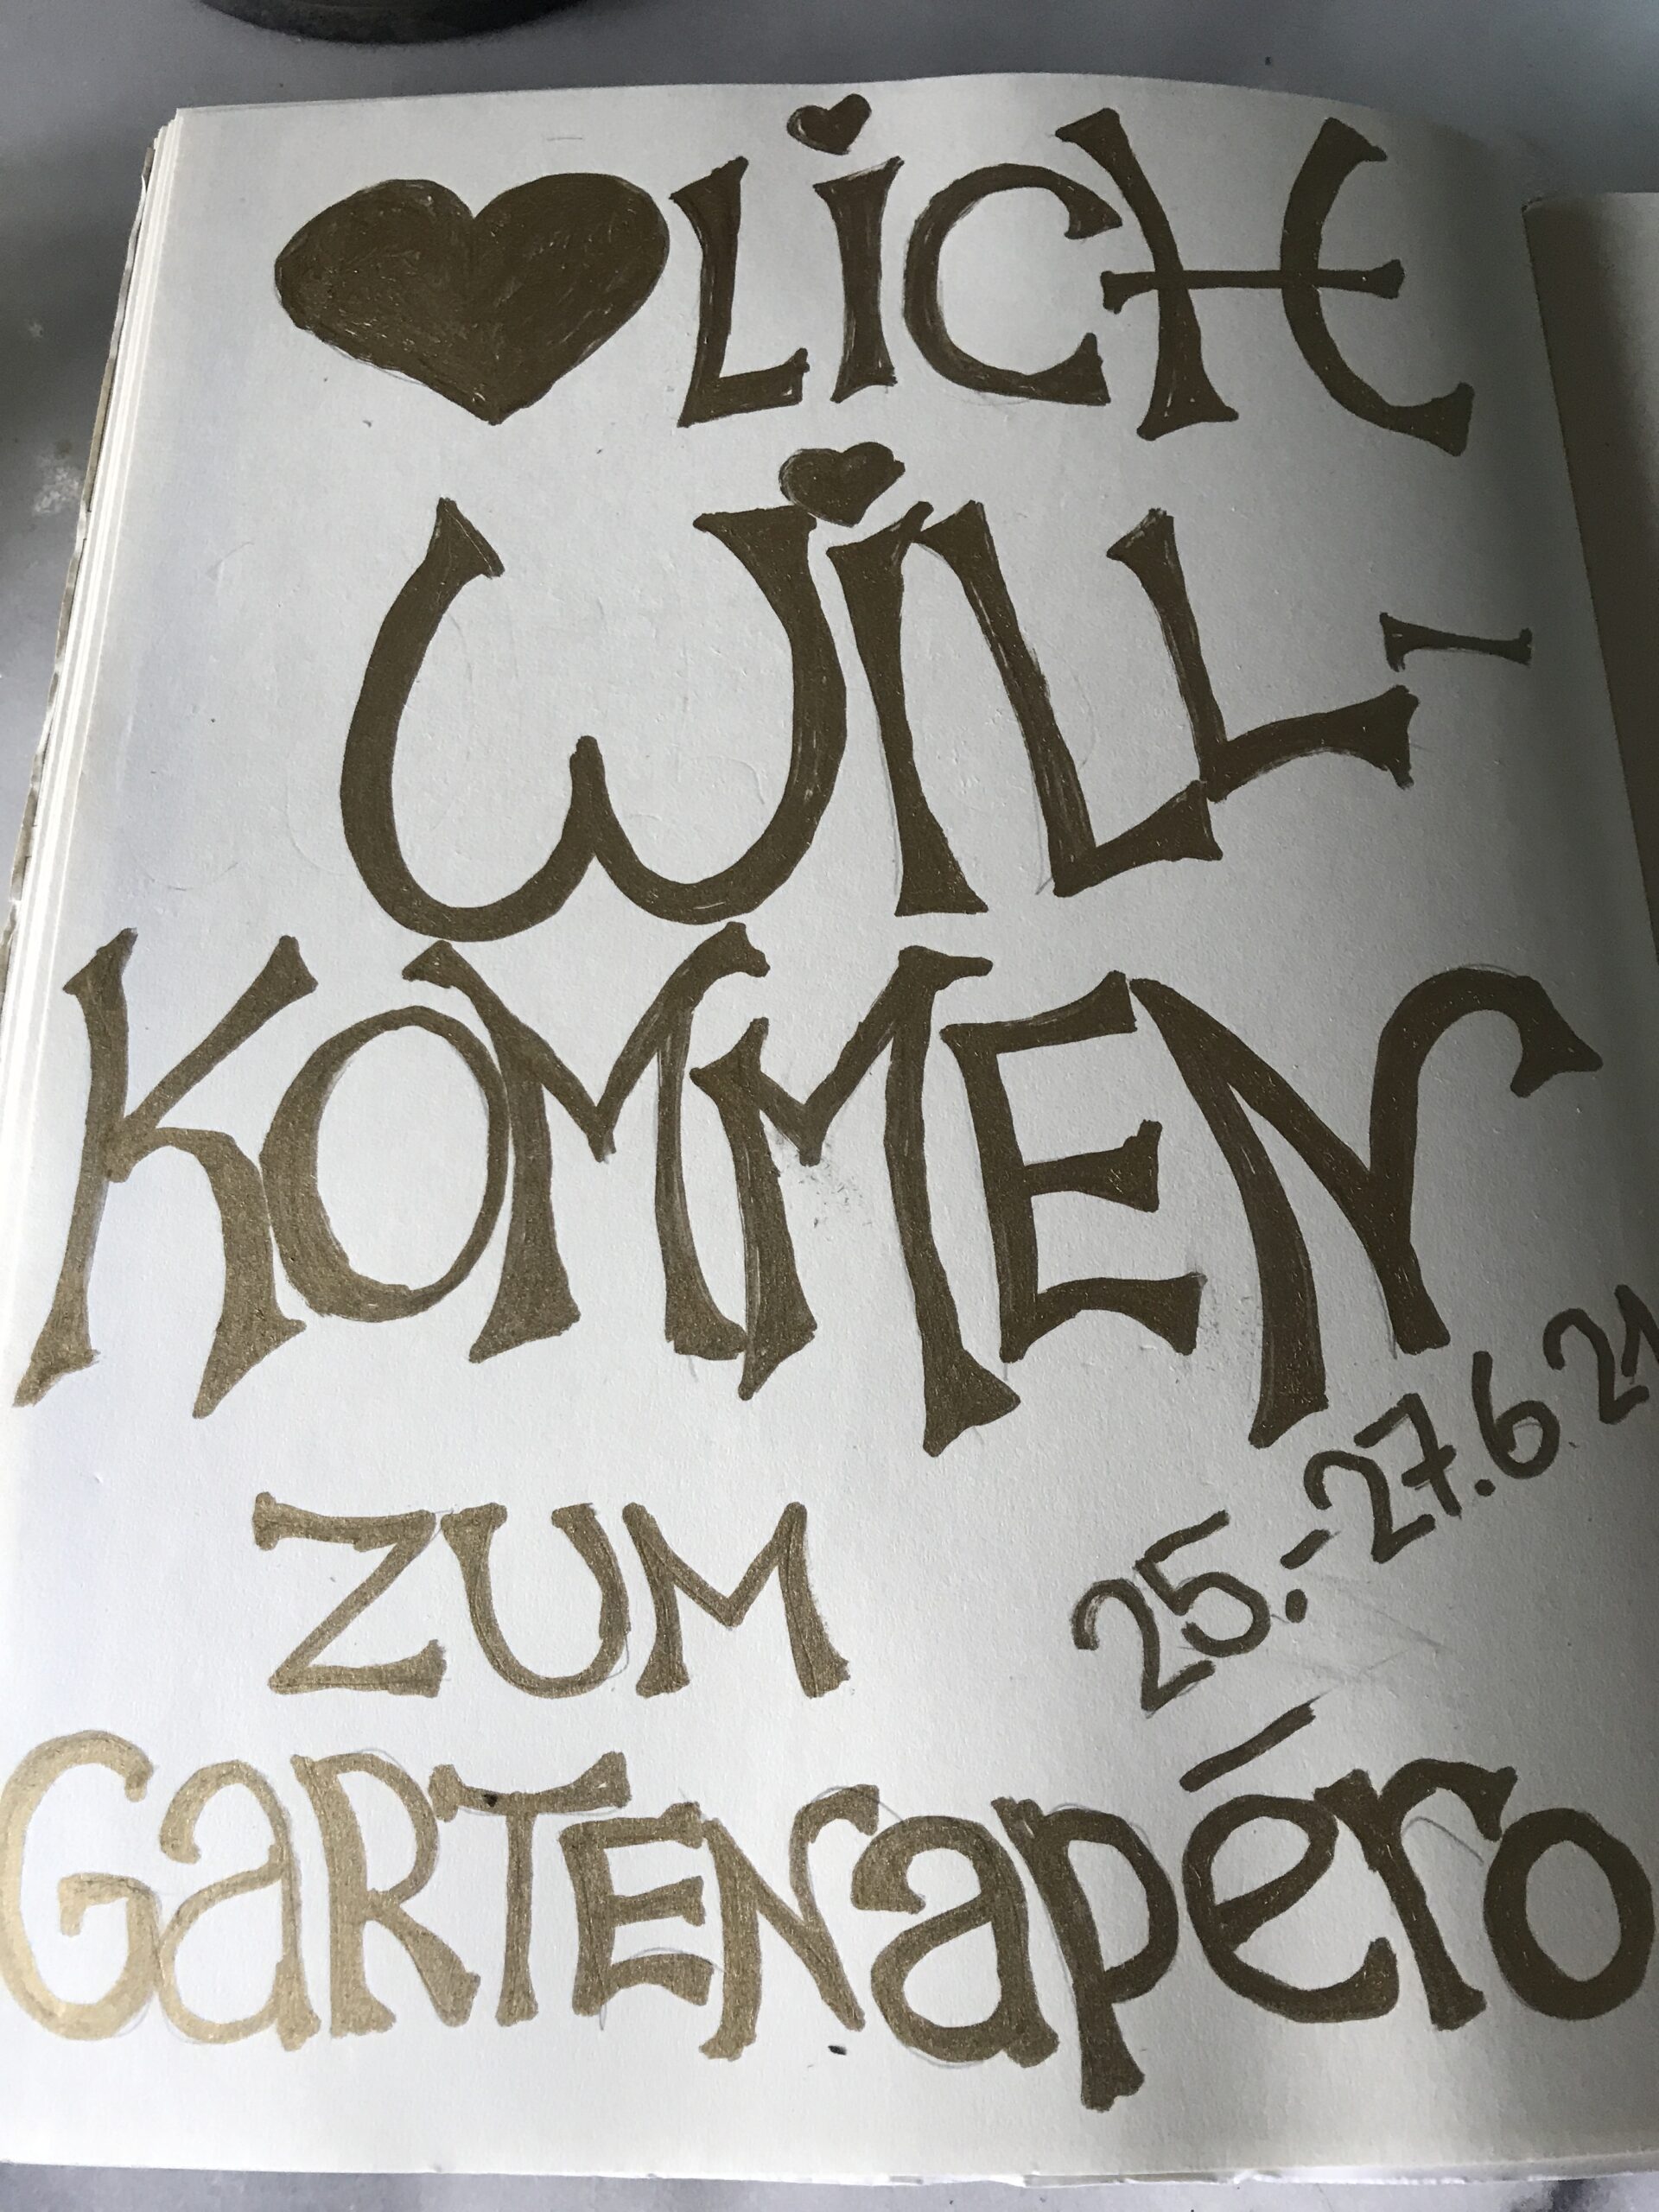 ♥LiCH
WiLL-
KOMMEN
ZUM
25.-27.6 21
GaRTENapéro